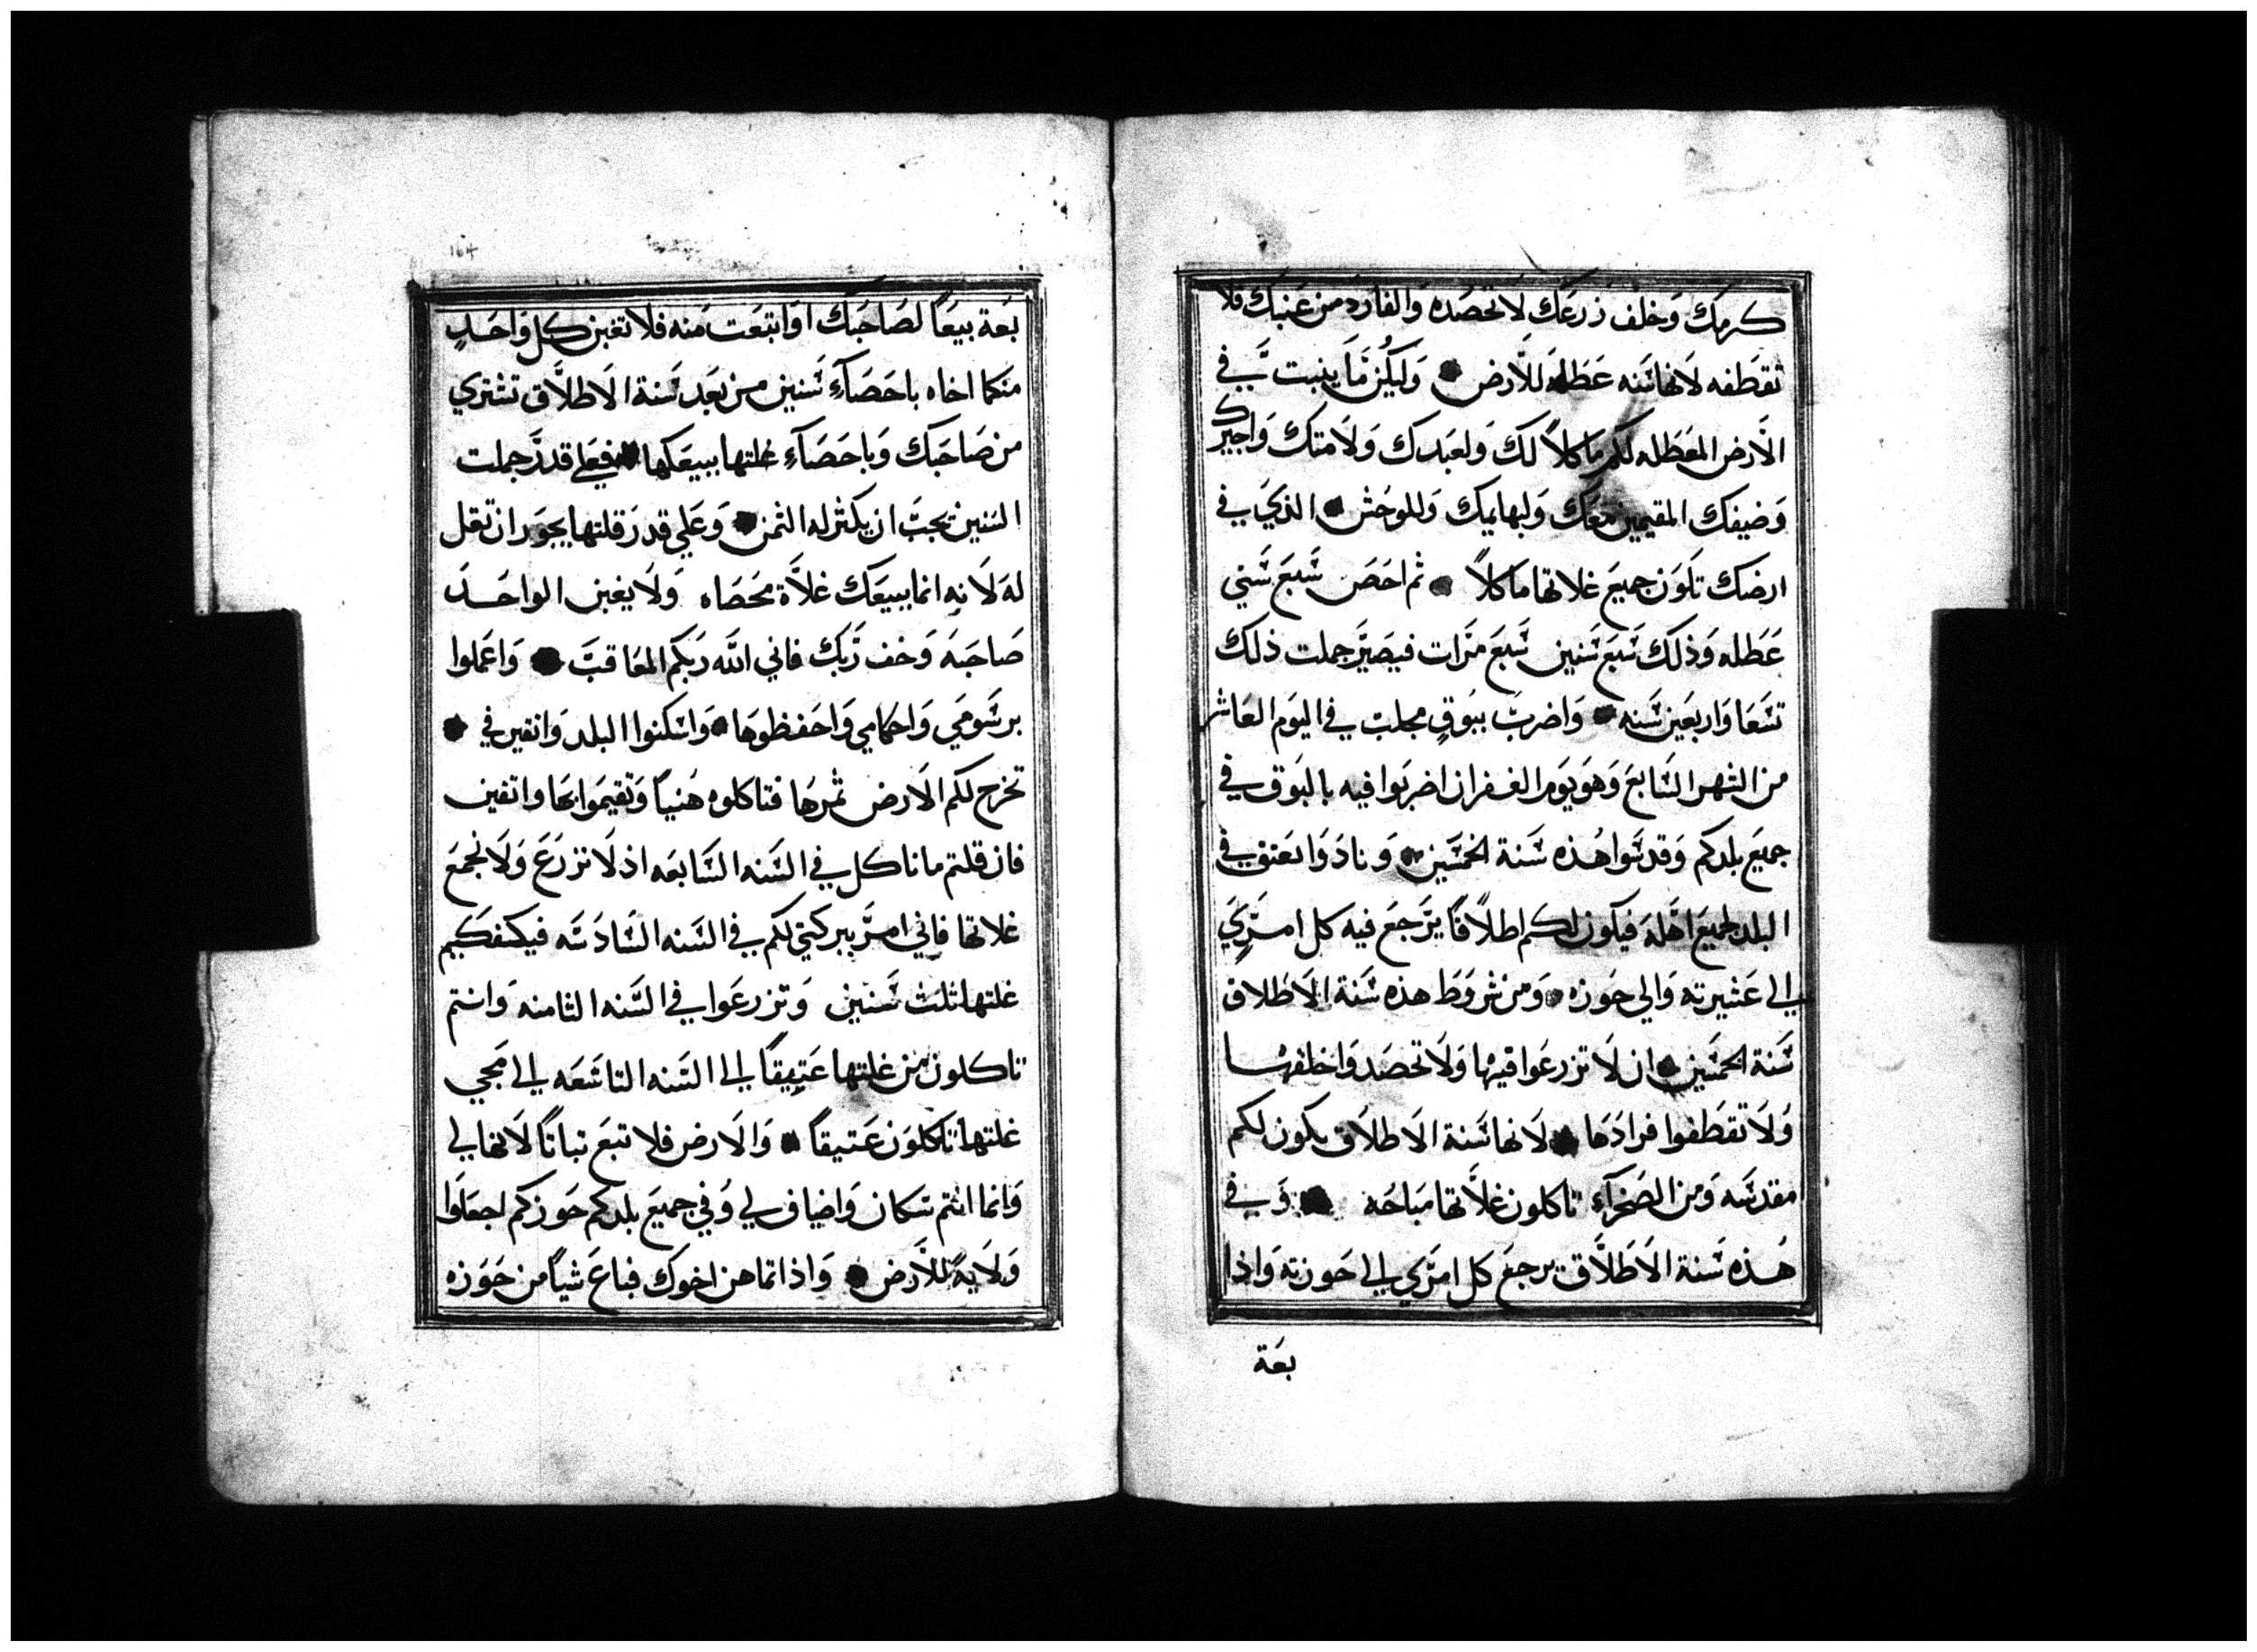 كرمك وخلف زرعك لا تحصده والفارد من عنبك فلا
تقطفه لانها سنه عطله للارض وليكن ما ينبت في
الارض المعطله لكم ماكلاً لك ولعبدك ولامتك واجيرك
وضيفك المقيمين معك ولبهايمك وللوحش الذي في
ارضك تكون جميع غلاتها ماكلاً ثم احص سبع سني
عطله وذلك سبع سنين سبع مرات فيصير جملت ذلك
تسعا واربعين سنه واضرب ببوق مجلب في اليوم العاشر
من الشهر السابع وهو يوم الغفران اضربوا فيه بالبوق في
جميع بلدكم وقدسوا هذه سنة الخمسين ونادوا بعتق في
البلد لجميع اهله فيكون لكم اطلاقاً يرجع فيه كل امري
الى عشيرته والى حوزه ومن شروط هذه سنة الاطلاق
سنة الخمسين ان لا تزرعوا فيها ولا تحصدوا خلفها
ولا تقطفوا فرادها لانها سنة الاطلاق يكون لكم
مقدسه ومن الصحرآء تاكلون غلاتها مباحه وفي
هذه سنة الاطلاق يرجع كل امري الى حوزته واذا
بعة
164
بعة بيعاً لصاحبك او ابتعت منه فلا تغبن كل واحد
منكما اخاه باحصآء سنين من بعد سنة الاطلاق تشتري
من صاحبك وباحصآء غلتها يبيعكها فعلى قدر جملت
السنين يجب ان يكثر له الثمن وعلى قدر قلتها يجور ان تقل
له لانه انما يبيعك غلاة محصاه ولا يغبن الواحد
صاحبه وخف ربك فاني الله ربكم المعاقب واعملوا
برسومي واحكامي واحفظوها واسكنوا البلد واثقين في
تخرج لكم الارض ثمرها فتاكلوه هنياً وتقيموا بها واثقين
فان قلتم ما ناكل في السنه السابعه اذ لا نزرع ولا نجمع
غلاتها فاني امر ببركتي لكم في السنه السادسه فيكفكم
غلتها ثلث سنين وتزرعوا في السنه الثامنه وانتم
تاكلون من غلتها عتيقاً الى السنه التاسعه الى مجي
غلتها تاكلون عتيقاً والارض فلا تبع تباتاً لانها لي
وانما انتم سكان واضياف لي وفي جميع بلدكم حوزكم اجعلوا
ولايةً للارض واذا تماهن اخوك فباع شياً من حوزه